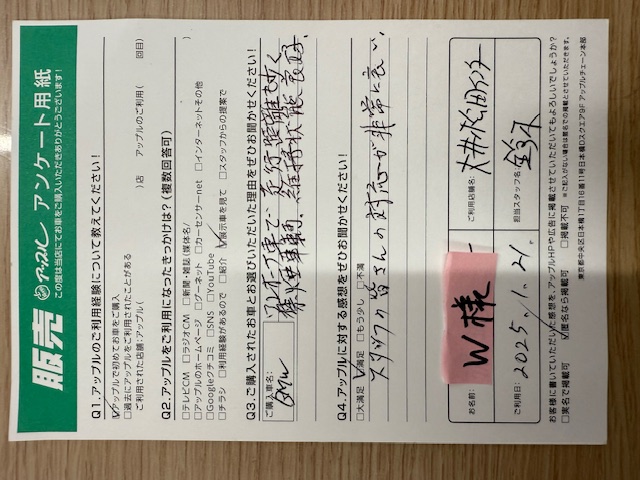 販売 アップル アンケート用紙
この度は当店にてお車をご購入いただきありがとうございます!
Q1.アップルのご利用経験について教えてください!
☑アップルで初めてお車をご購入
□過去にアップルをご利用されたことがある
ご利用された店舗:アップル( )店 アップルのご利用( 回目)
Q2.アップルをご利用になったきっかけは?(複数回答可)
□テレビCM □ラジオCM □新聞・雑誌(媒体名/ )
□アップルのホームページ □グーネット □カーセンサーnet □インターネットその他
□Googleクチコミ □SNS □YouTube ☑展示車を見て □スタッフからの提案で
□チラシ □利用経験があるので □紹介
Q3.ご購入されたお車とお選びいただいた理由をぜひお聞かせください!
ご購入車名:
BMW
ワンオーナー車で、走行距離も短く
禁煙車輌、維持状態良好。
Q4.アップルに対する感想をぜひお聞かせください!
□大満足 ☑満足 □もう少し □不満
スタッフの皆さんの対応が非常に良い
お名前:
W様
ご利用店舗名:
大井松田インター
ご利用日:
2025.1.21.
担当スタッフ名:
鈴木
お客様に書いていただいた感想を、アップルHPや広告に掲載させていただいてもよろしいでしょうか?
□実名で掲載可 ☑匿名なら掲載可 □掲載不可 ※ご記入がない場合は匿名での掲載とさせていただきます。
東京都中央区日本橋1丁目16番11号日本橋Dスクエア9F アップルチェーン本部